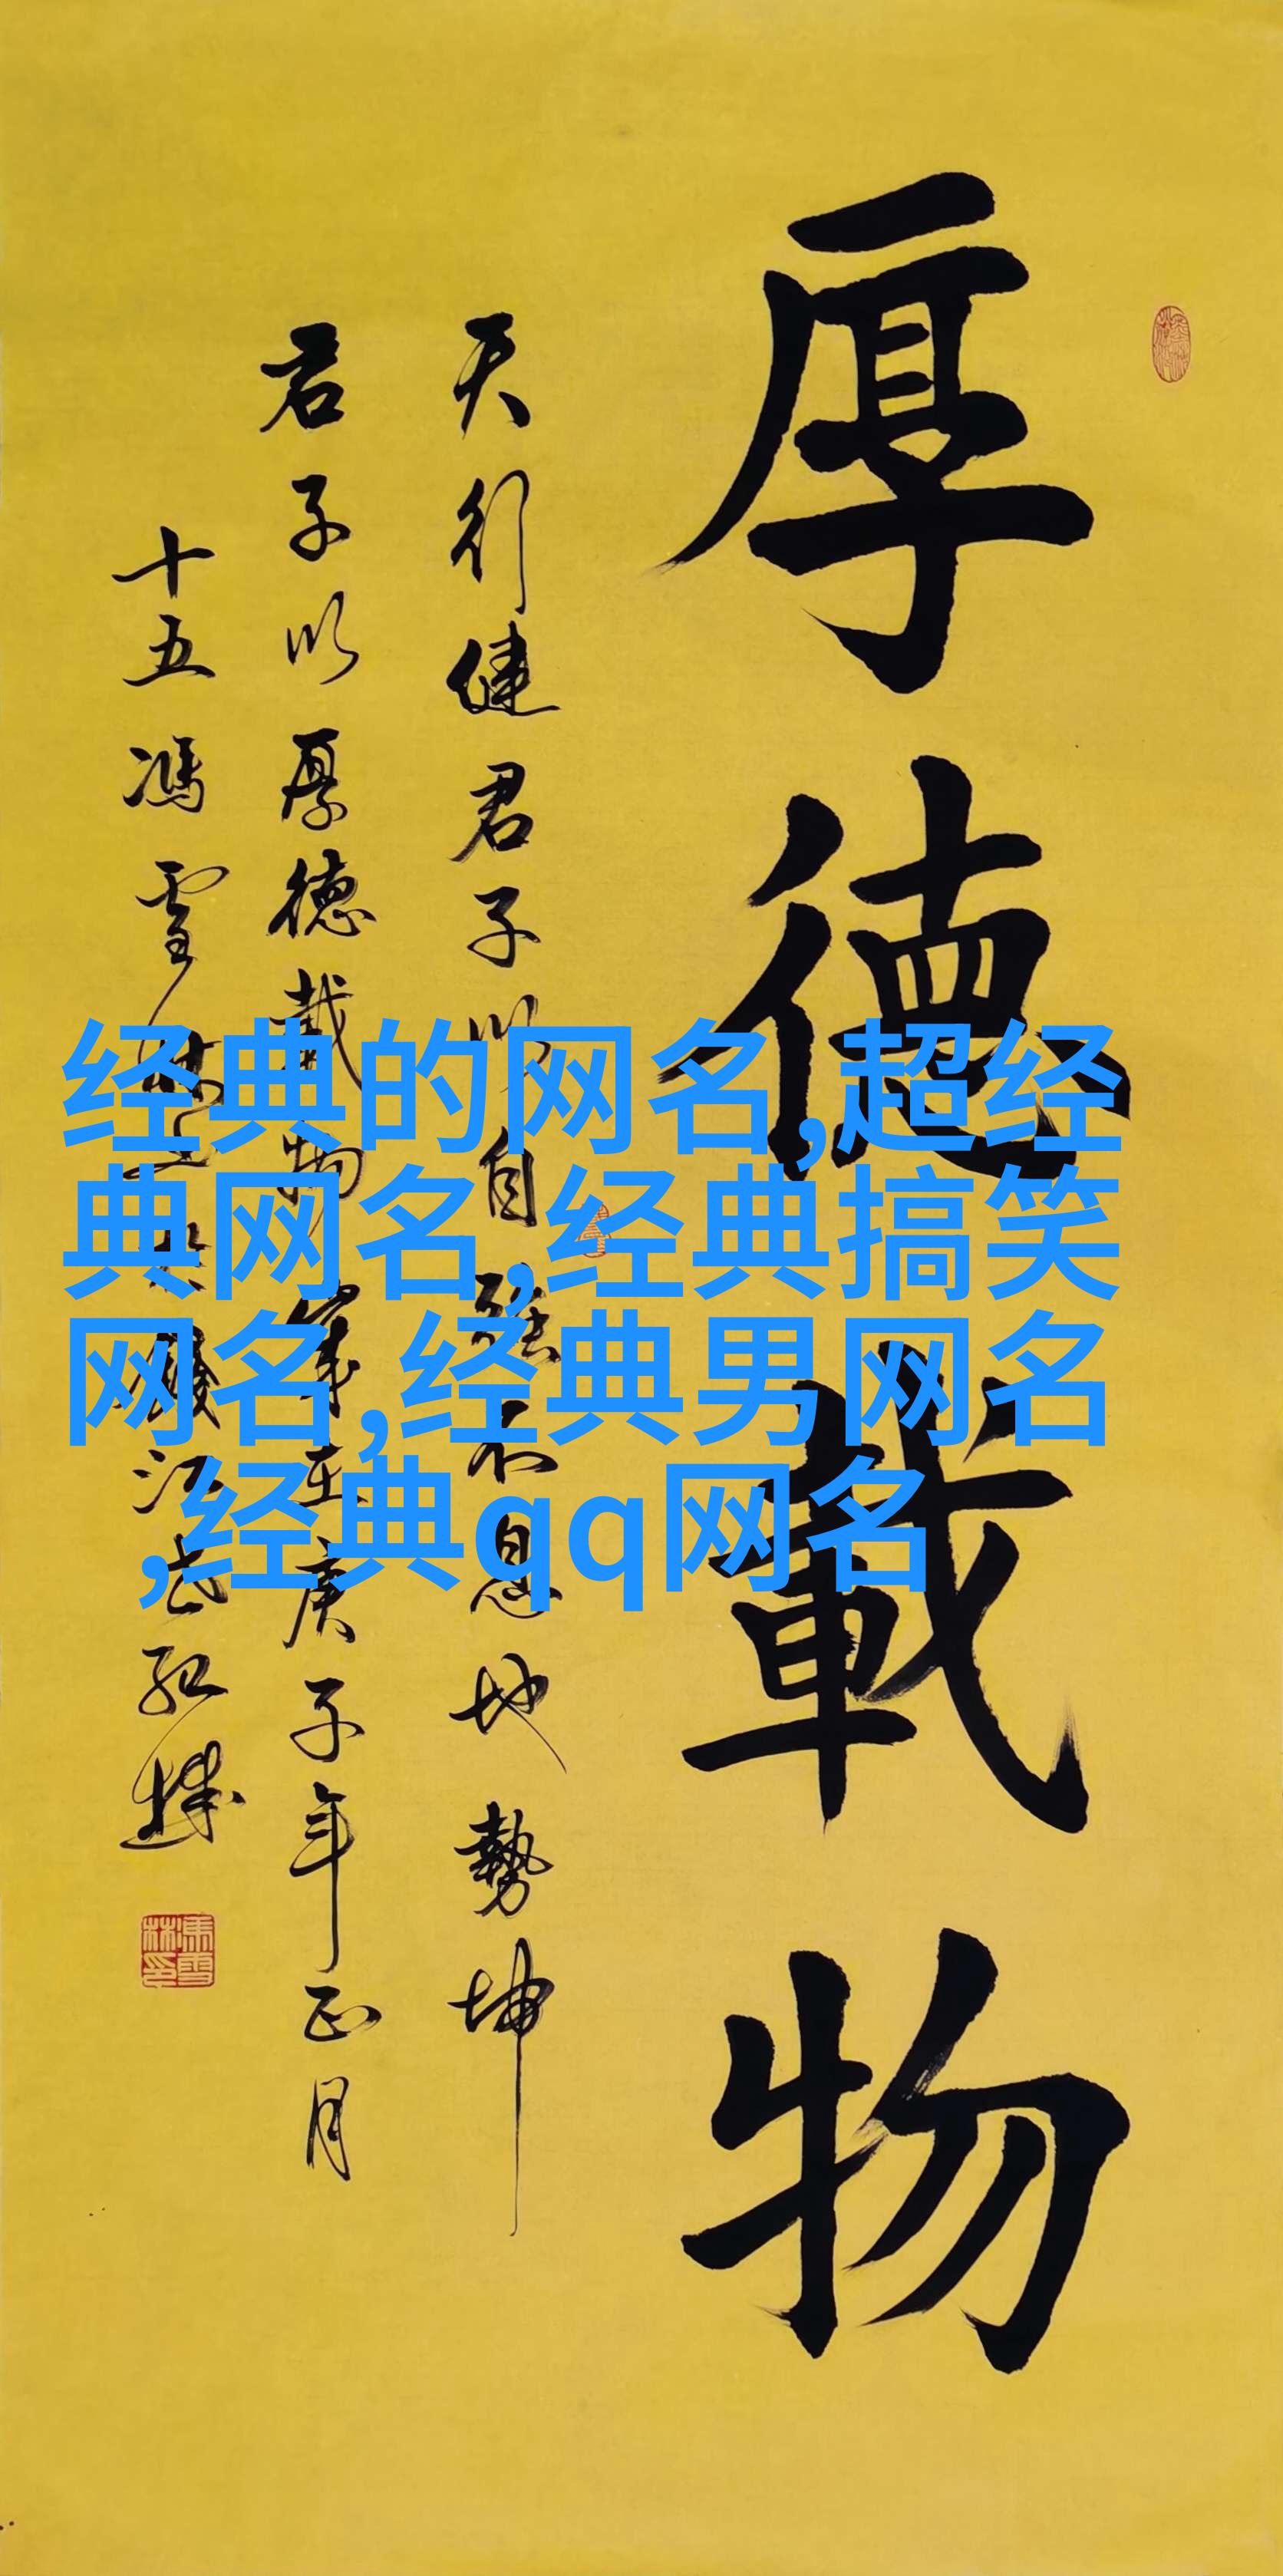 厚德載物
天行健君子以自強不息地勢坤
君子以厚德載物 歲在庚子年正月
十五馮雪林
馮雪林印
经典的网名,超经
典网名,经典搞笑
网名,经典男网名
,经典qq网名